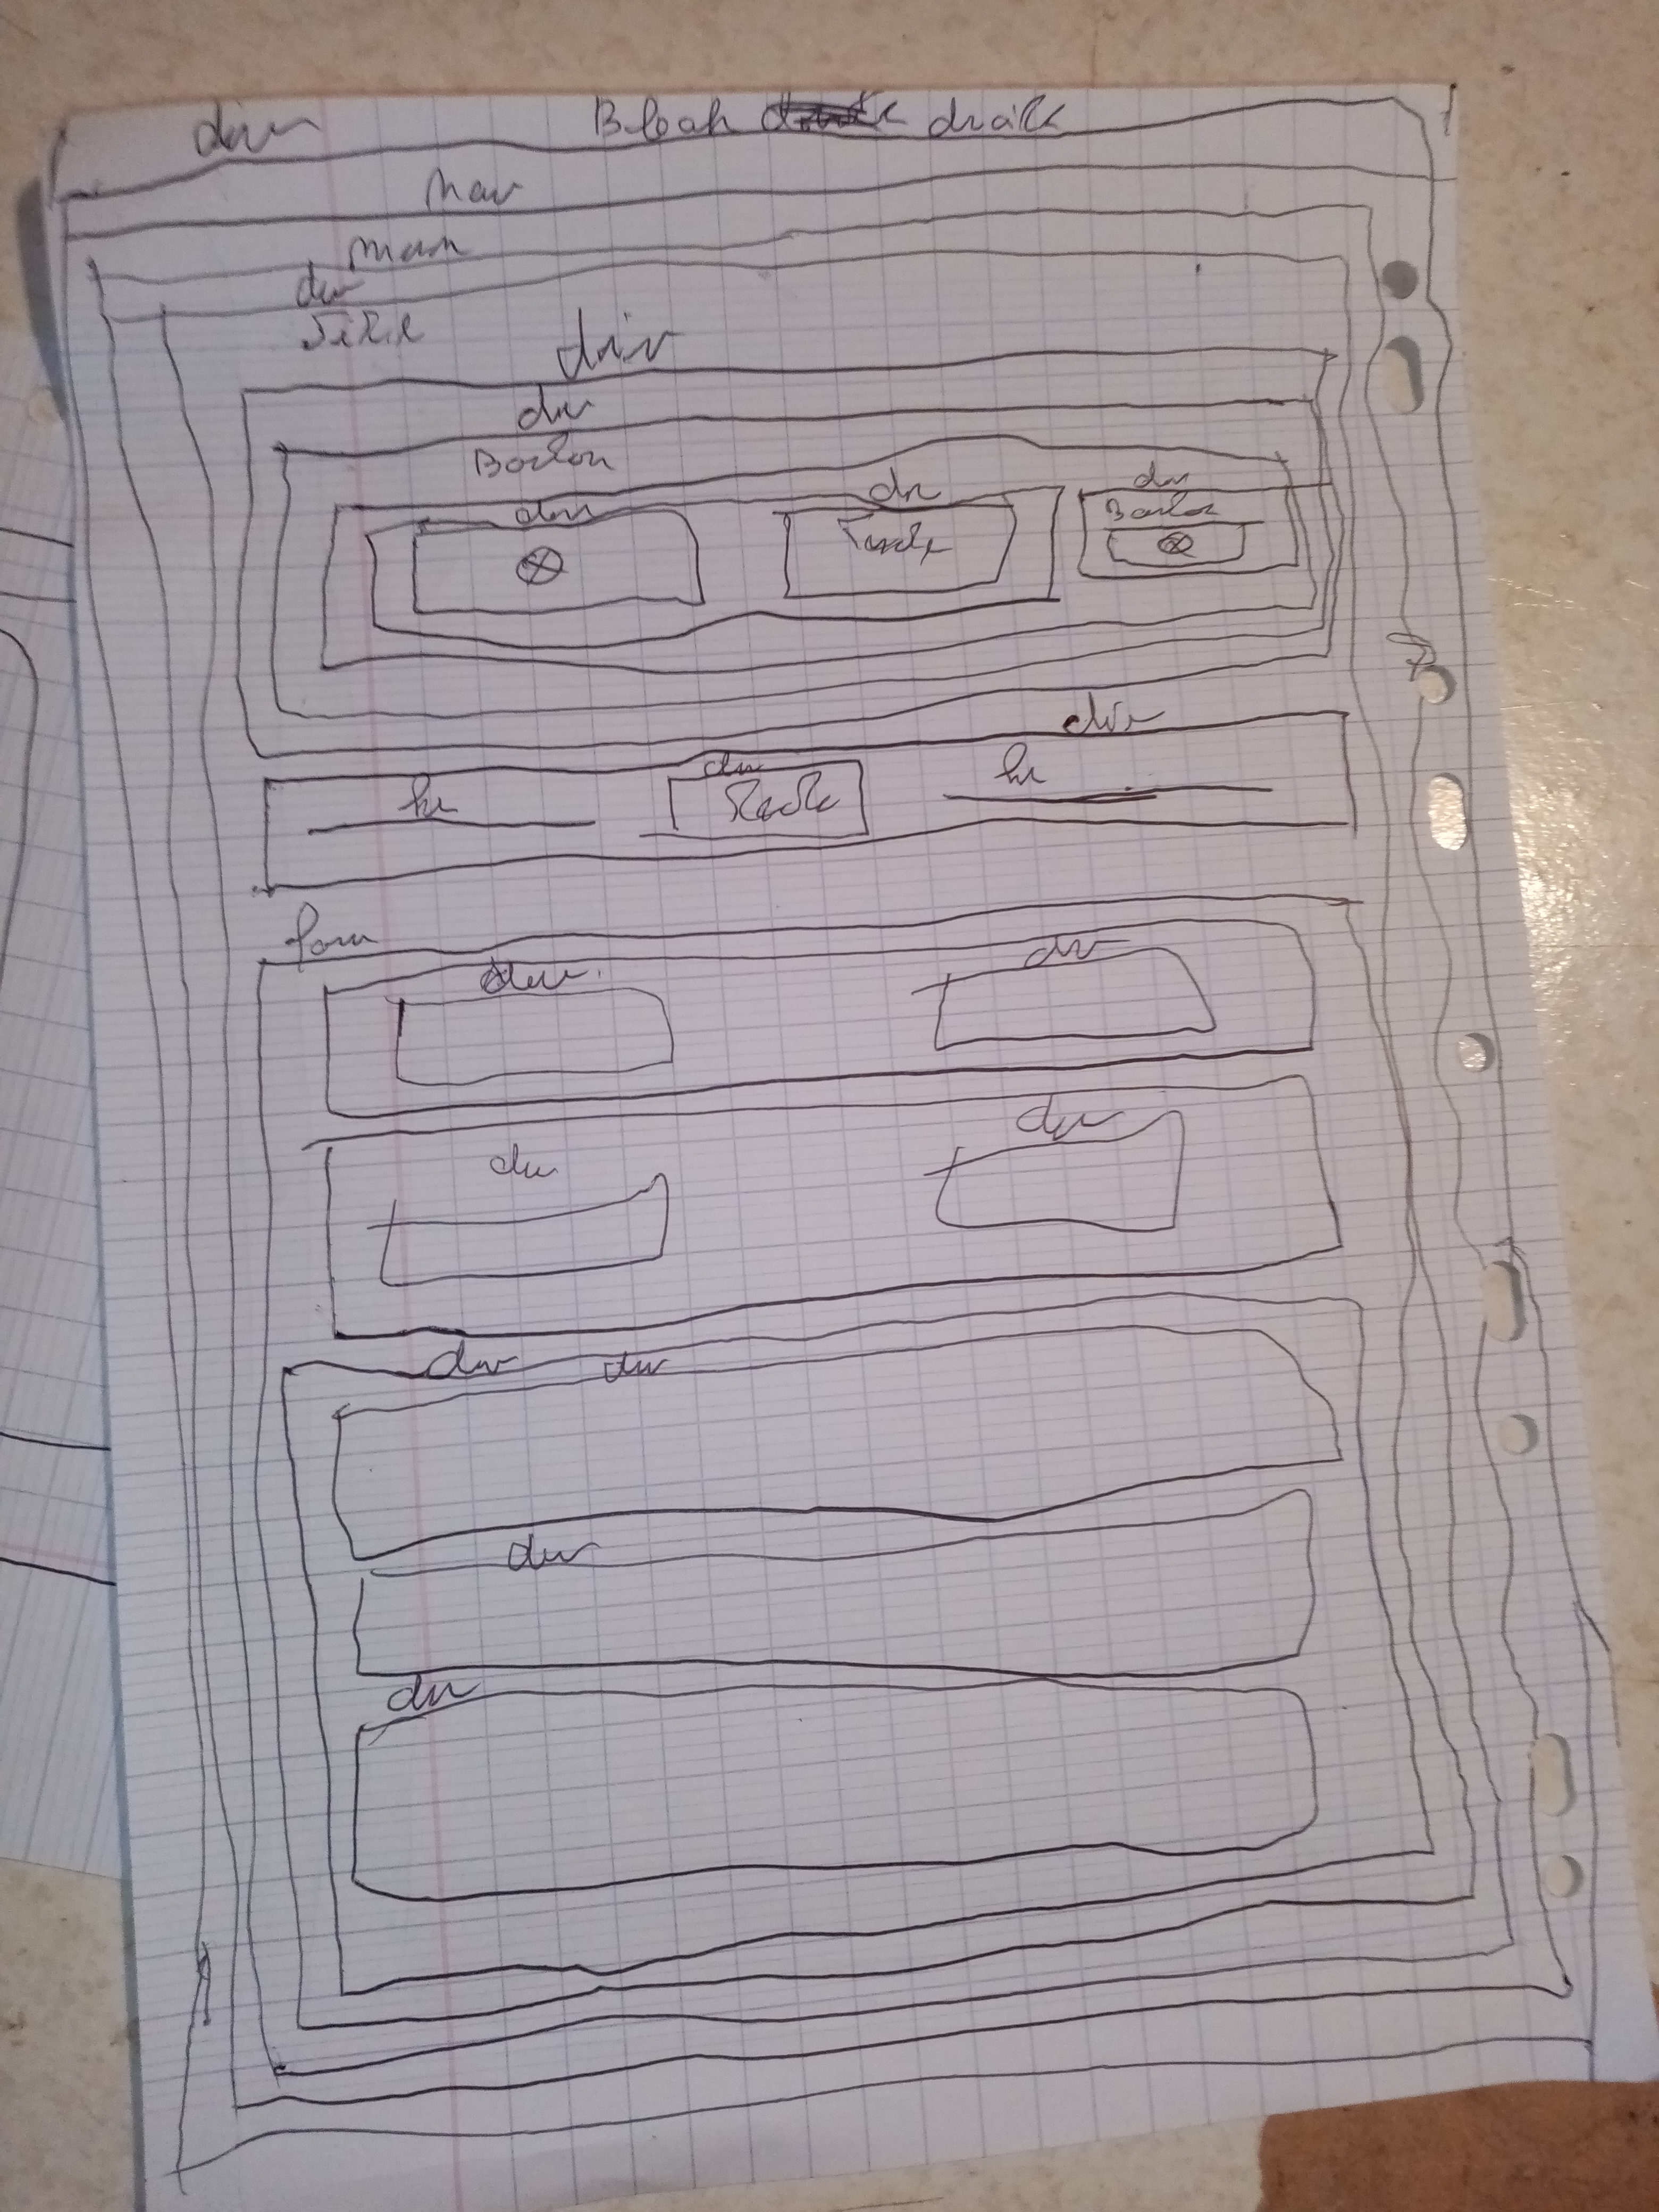 div Bloc droite
nav
main
div
Titre
div
div
Bouton
div div div
Texte Bouton
div
hr div hr
Texte
form
div div
div div
div div
div
div